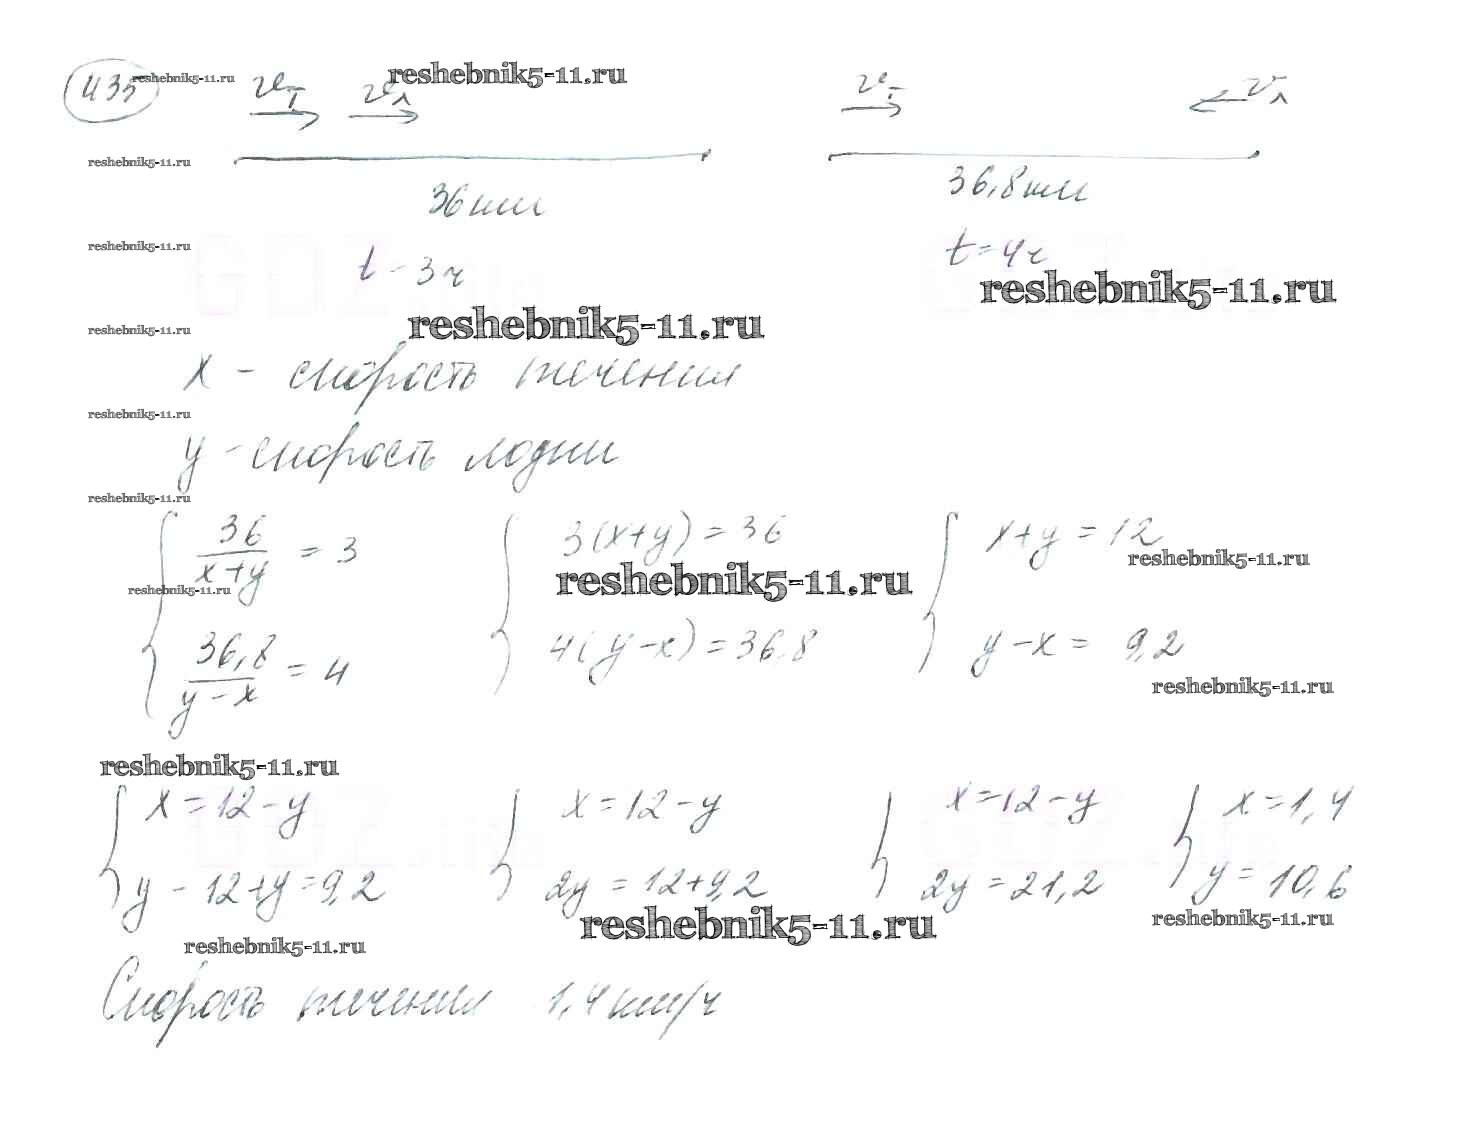 435 reshebnik5-11.ru
vт vл reshebnik5-11.ru vт vл
reshebnik5-11.ru
36 км 36,8 км
reshebnik5-11.ru
t - 3 ч t = 4 ч
reshebnik5-11.ru
reshebnik5-11.ru reshebnik5-11.ru
x - скорость течения
reshebnik5-11.ru
y - скорость лодки
reshebnik5-11.ru
36/(x+y) = 3 3(x+y) = 36 x+y = 12
reshebnik5-11.ru reshebnik5-11.ru reshebnik5-11.ru
36,8/(y-x) = 4 4(y-x) = 36,8 y-x = 9,2
reshebnik5-11.ru
reshebnik5-11.ru
x = 12-y x = 12-y x = 12-y x = 1,4
y - 12+y = 9,2 2y = 12+9,2 2y = 21,2 y = 10,6
reshebnik5-11.ru reshebnik5-11.ru reshebnik5-11.ru
Скорость течения 1,4 км/ч